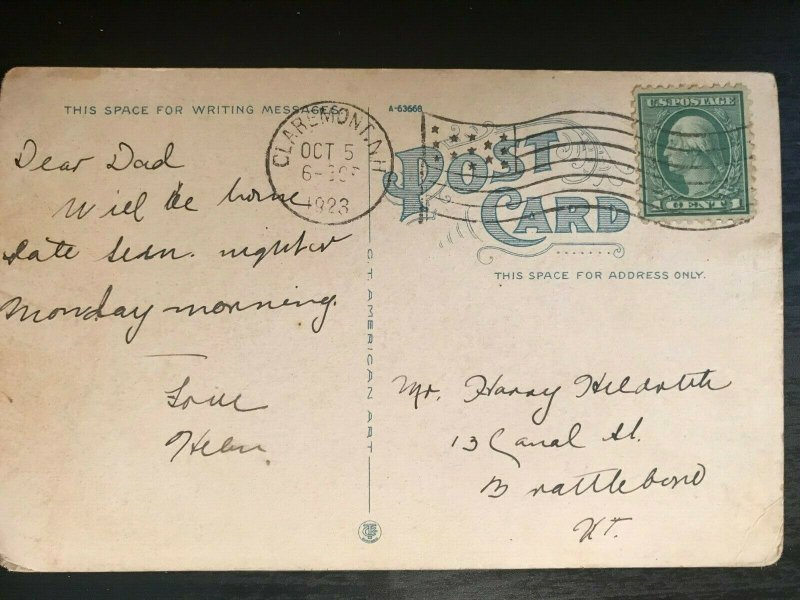 THIS SPACE FOR WRITING MESSAGES
A-63668
CLAREMONT, N.H.
OCT 5
6-
1923
U.S. POSTAGE
1 CENT 1
POST CARD
THIS SPACE FOR ADDRESS ONLY.
C.T. AMERICAN ART
Dear Dad
Will be home
late Sun. night or
Monday morning.
Love
Helen
Mr. Harry Hildreth
13 Canal St.
Brattleboro
Vt.